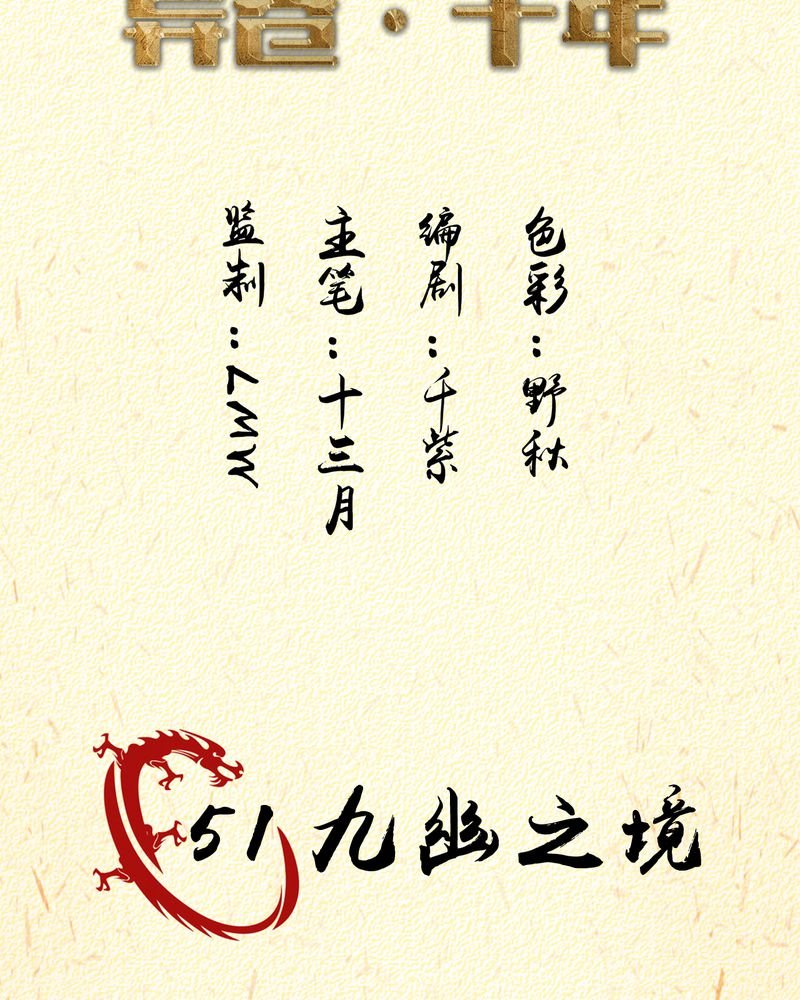 ·千年
监制：MW7
主笔：十三月
编剧：千紫
色彩：野秋
51 九幽之境